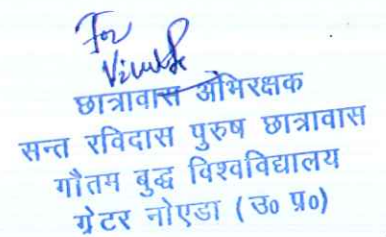 For
छात्रावास अभिरक्षक
सन्त रविदास पुरुष छात्रावास
गौतम बुद्ध विश्वविद्यालय
ग्रेटर नोएडा (उ० प्र०)